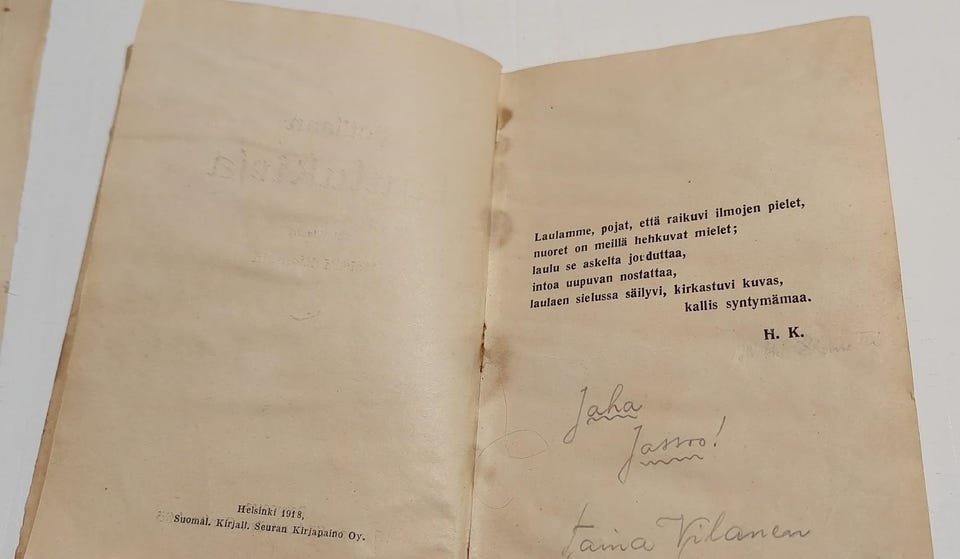 Helsinki 1918,
Suomal. Kirjall. Seuran Kirjapaino Oy.
Laulamme, pojat, että raikuvi ilmojen pielet,
nuoret on meillä hehkuvat mielet;
laulu se askelta jouduttaa,
intoa uupuvan nostattaa,
laulaen sielussa säilyvi, kirkastuvi kuvas,
kallis syntymämaa.
H. K.
Jaha
Jassoo!
Taina Vilanen